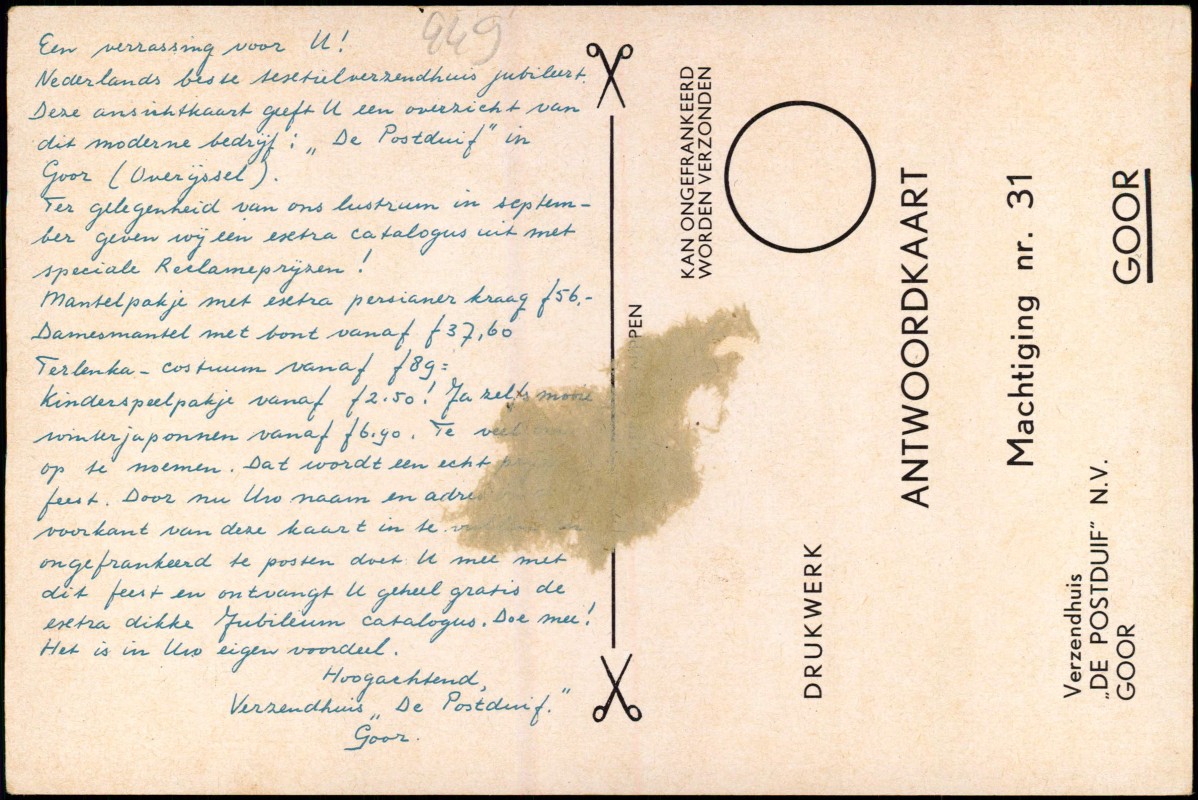 949
Een verrassing voor U!
Nederlands beste textielverzendhuis jubileert.
Deze ansichtkaart geeft U een overzicht van
dit moderne bedrijf: „De Postduif" in
Goor (Overijssel).
Ter gelegenheid van ons lustrum in septem-
ber geven wij een extra catalogus uit met
speciale Reclameprijzen!
Mantelpakje met extra persianer kraag f56.-
Damesmantel met bont vanaf f37,60
Terlenka - costuum vanaf f89=
Kinderspeelpakje vanaf f2.50! Ja zelfs mooie
winterjaponnen vanaf f6.90. Te veel om
op te noemen. Dat wordt een echt
feest. Door nu Uw naam en adres
voorkant van deze kaart in te
ongefrankeerd te posten doet U mee met
dit feest en ontvangt U geheel gratis de
extra dikke Jubileum catalogus. Doe mee!
Het is in Uw eigen voordeel.
Hoogachtend,
Verzendhuis „De Postduif."
Goor.
KAN ONGEFRANKEERD
WORDEN VERZONDEN
ANTWOORDKAART
DRUKWERK
Machtiging nr. 31
Verzendhuis
„DE POSTDUIF" N.V.
GOOR
GOOR